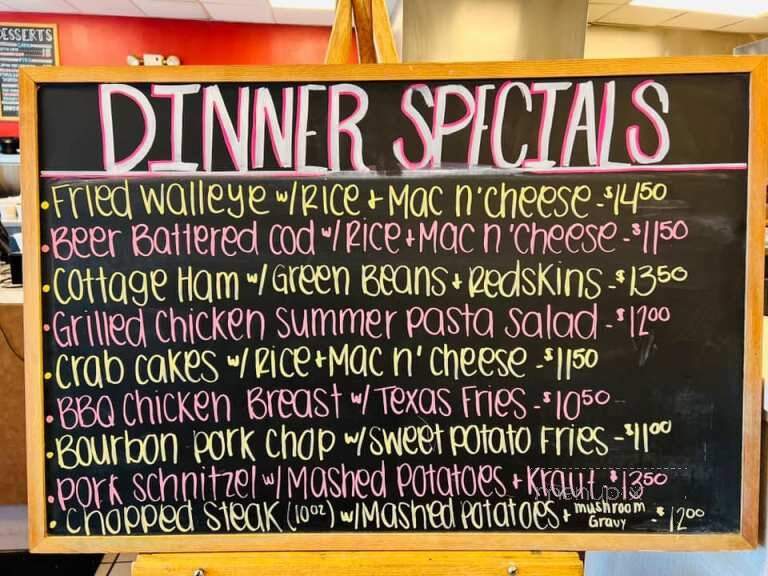 DESSERTS
DINNER SPECIALS
• Fried Walleye w/Rice + Mac n' cheese - $14.50
• Beer Battered Cod w/Rice + Mac n' cheese - $11.50
• Cottage Ham w/Green Beans + Redskins - $13.50
• Grilled Chicken Summer Pasta Salad - $12.00
• Crab Cakes w/Rice + Mac n' cheese - $11.50
• BBQ Chicken Breast w/Texas Fries - $10.50
• Bourbon Pork Chop w/Sweet Potato Fries - $11.00
• Pork Schnitzel w/Mashed Potatoes + Kraut $13.50
menupix
• Chopped Steak (10oz) w/Mashed Potatoes + mushroom Gravy - $12.00